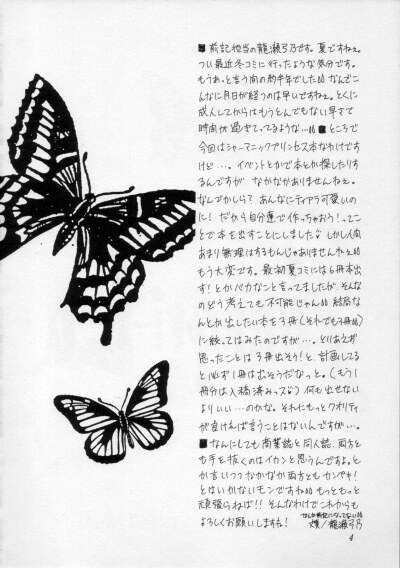 ■前記担当の龍瀬弓乃です。夏ですねぇ。
つい最近冬コミに行ったような気分です。
もうあっと言う間の約半年でした。なんでこ
んなに月日が経つのは早いですねぇ。とくに
成人してからはもうとんでもない早さで
時間が過ぎてってるような…。■ところで
今回はシャーマニックプリンセス本なわけです
けど…。イベントとかで本とか探したりす
るんですが なかなかありませんねぇ。
なんでかしら? あんなにティアラ可愛いの
に! だから自分達で作っちゃおう!ってこ
とで本を出すことにしました♪しかし(あ)
あまり無理はするもんじゃありませんねぇ
もう大変です。最初夏コミには6冊本出
す!とかバカなこと言ってましたが、そんな
のどう考えても不可能じゃん。結局な
んとか出したい本を3冊(それでも3冊)
に絞ってはみたのですが…。とりあえず
思ったことは3冊出そう!と、計画してる
と必ず1冊は出そうだなっと。(もう1
冊分は入稿済みっス♪)何も出せない
よりいい…のかな。それにもっとクオリティ
が良ければ言うことはないんですが…。
■なんにしても商業誌と同人誌、両方と
も手を抜くのはイカンと思うんですよ。と
か言いつつなかなか両方ともカンペキ!
とはいかないモンですね。もっともっと
頑張らねば!!そんなわけでこれからも
よろしくお願いしますね!
なんか前記になってない
龍瀬弓乃
4